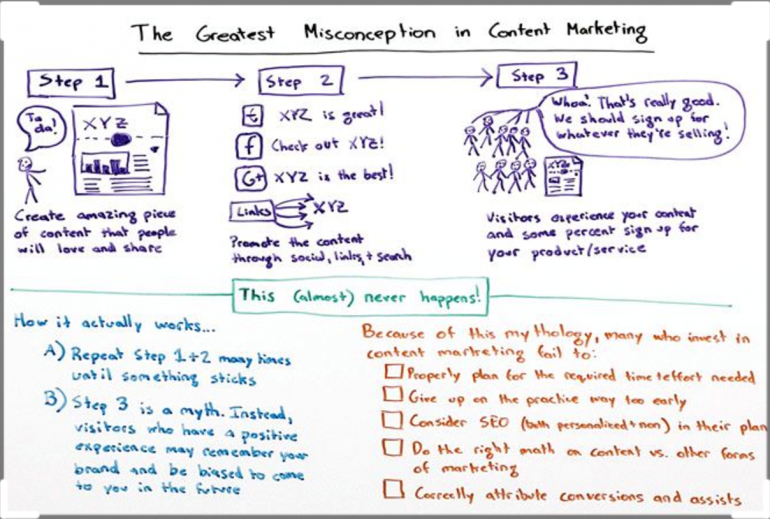 The Greatest Misconception in Content Marketing
Step 1
Step 2
Step 3
Ta
da!
XYZ
Create amazing piece
of content that people
will love and share
t XYZ is great!
f Check out XYZ!
G+ XYZ is the best!
Links XYZ
Promote the content
through social, links, + search
Whoa! That's really good.
We should sign up for
whatever they're selling!
XYZ
Visitors experience your content
and some percent sign up for
your product/service
This (almost) never happens!
How it actually works...
A) Repeat Step 1+2 many times
until something sticks
B) Step 3 is a myth. Instead,
visitors who have a positive
experience may remember your
brand and be biased to come
to you in the future
Because of this mythology, many who invest in
content marketing fail to:
Properly plan for the required time+effort needed
Give up on the practice way too early
Consider SEO (both personalized + non) in their plan
Do the right math on content vs. other forms
of marketing
Correctly attribute conversions and assists